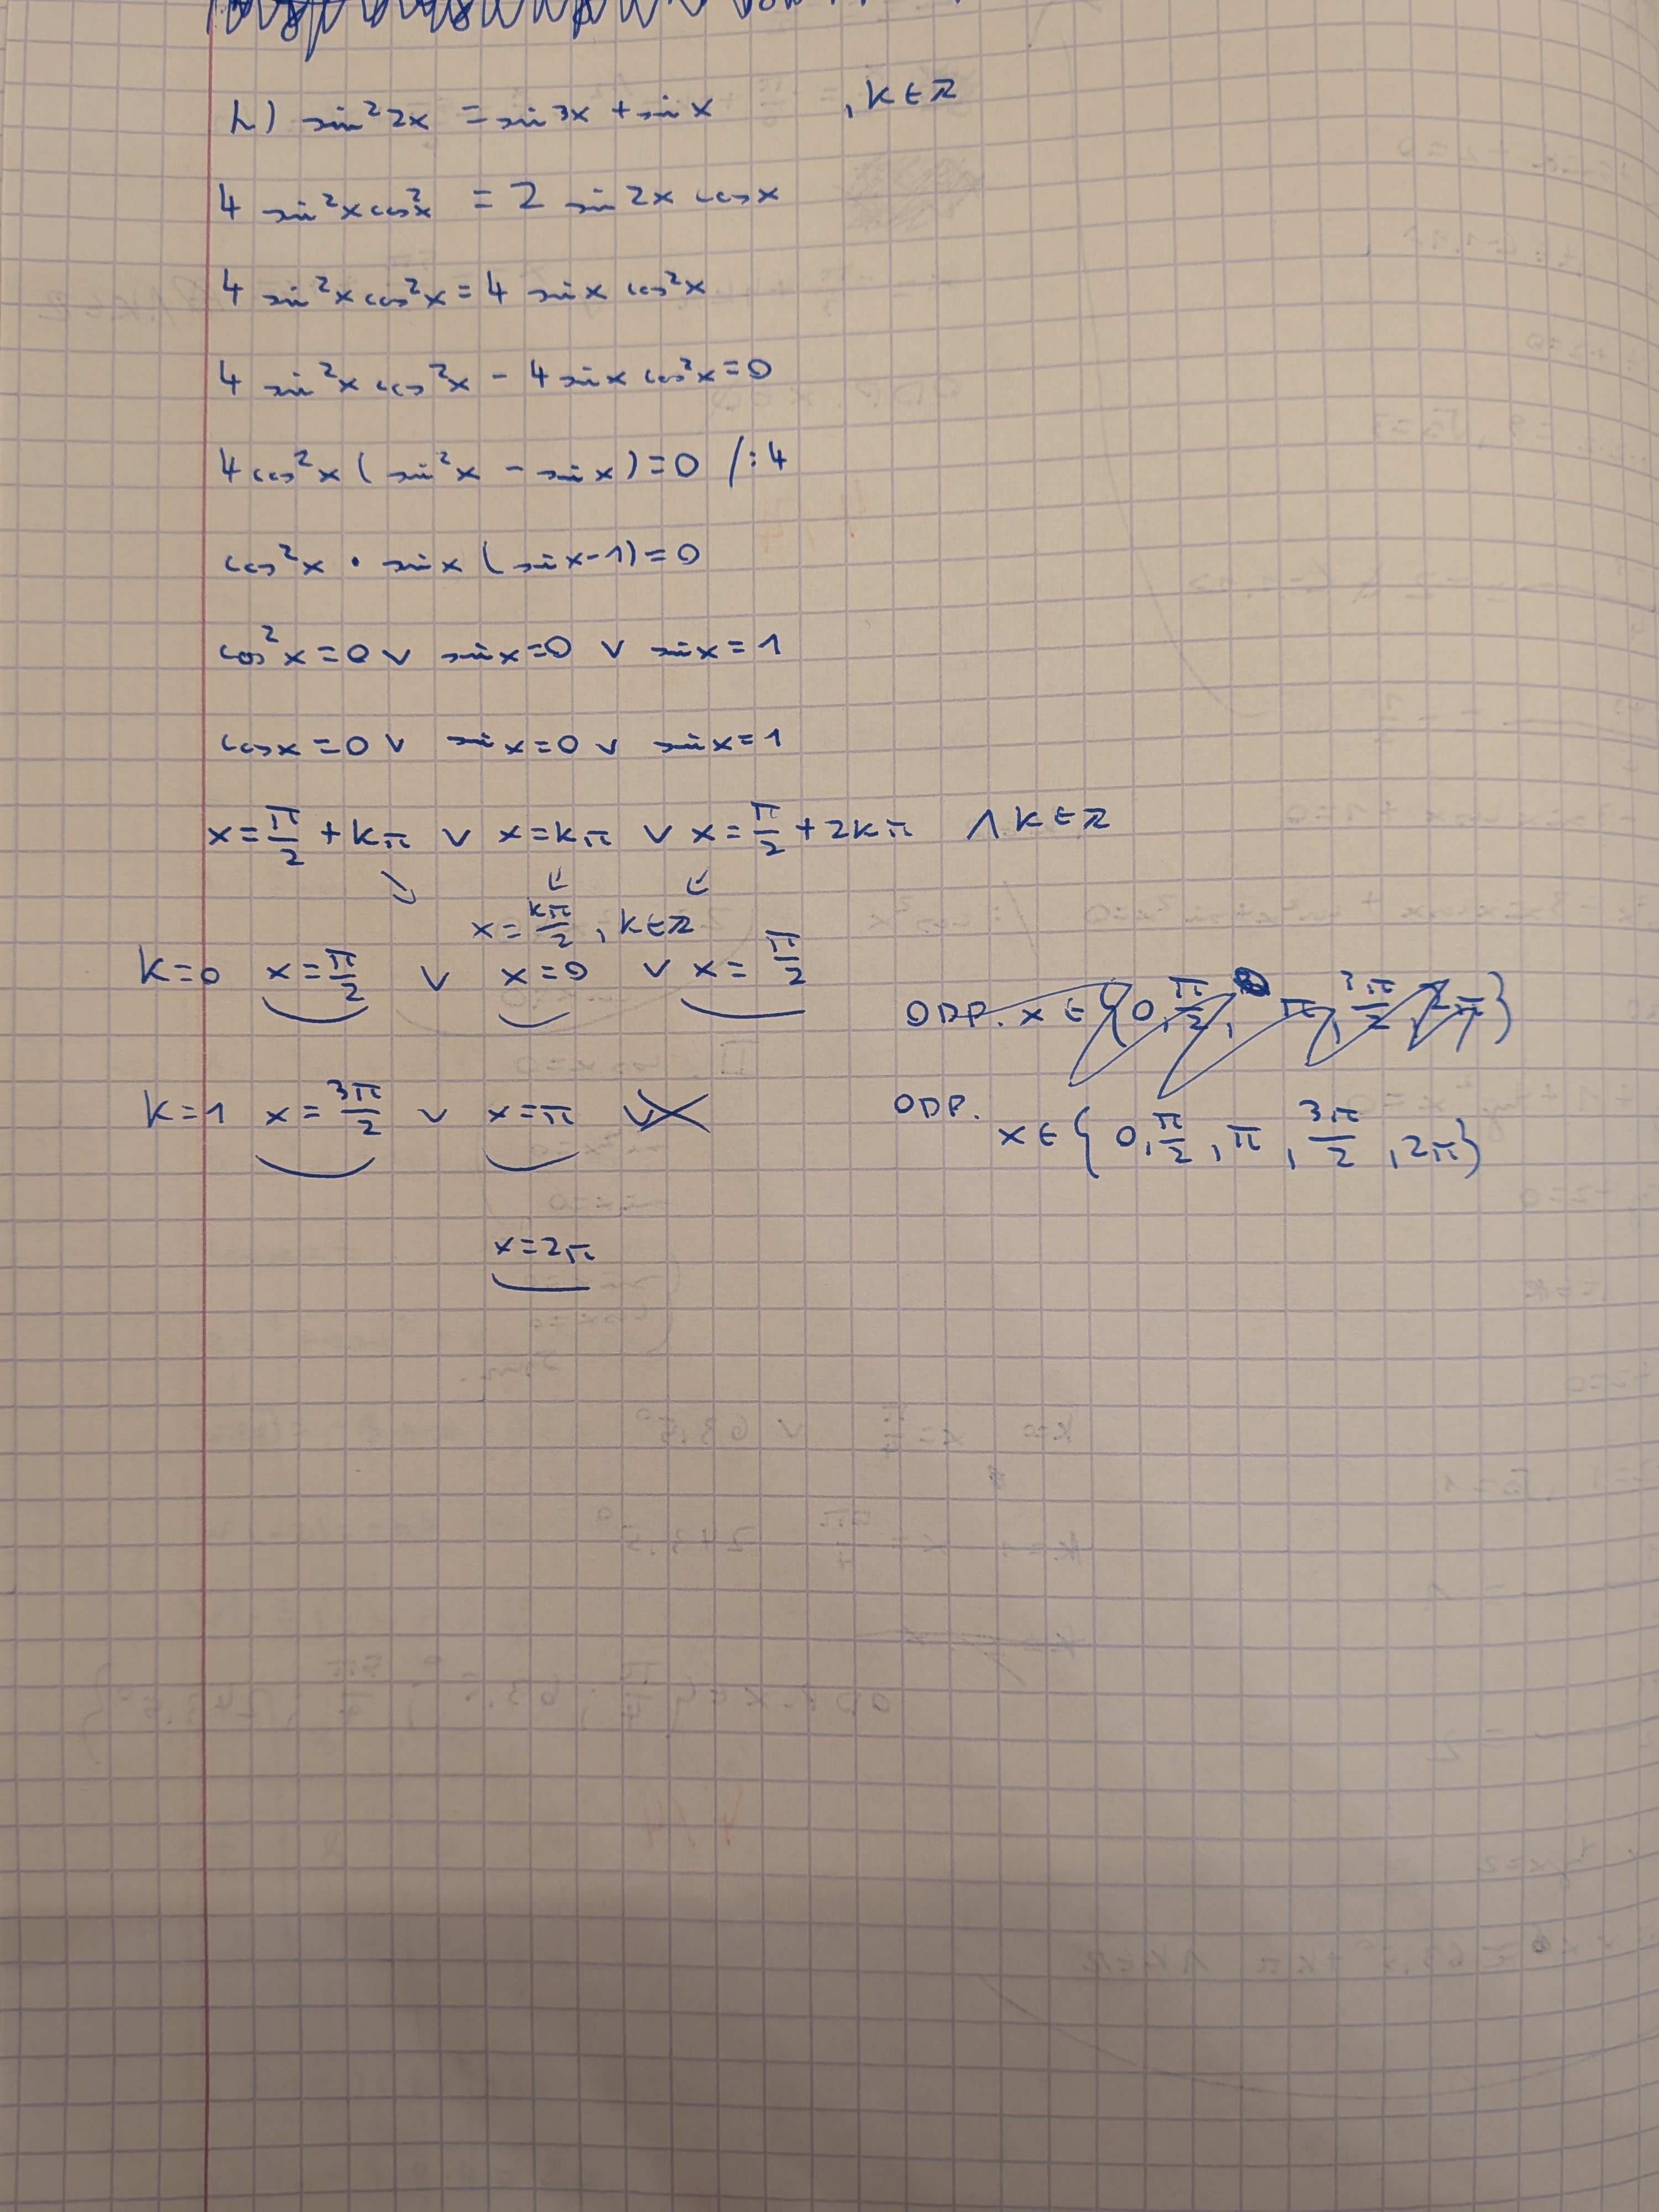 h) sin²2x = sin3x + sinx , k∈ℤ
4 sin²x cos²x = 2 sin2x cosx
4 sin²x cos²x = 4 sinx cos²x
4 sin²x cos²x - 4 sinx cos²x = 0
4cos²x ( sin²x - sinx ) = 0 /:4
cos²x · sinx ( sinx-1) = 0
cos²x = 0 ∨ sinx=0 ∨ sinx = 1
cosx = 0 ∨ sinx=0 ∨ sinx=1
x = π/2 + kπ ∨ x = kπ ∨ x = π/2 + 2kπ ∧ k∈ℤ
↘ ↙ ↙
x = kπ/2 , k∈ℤ
k=0 x = π/2 ∨ x = 0 ∨ x = π/2
ODP. x ∈ { 0, π/2, π, 3π/2, 2π }
k=1 x = 3π/2 ∨ x = π ∨
ODP. x ∈ { 0, π/2, π, 3π/2, 2π }
x = 2π